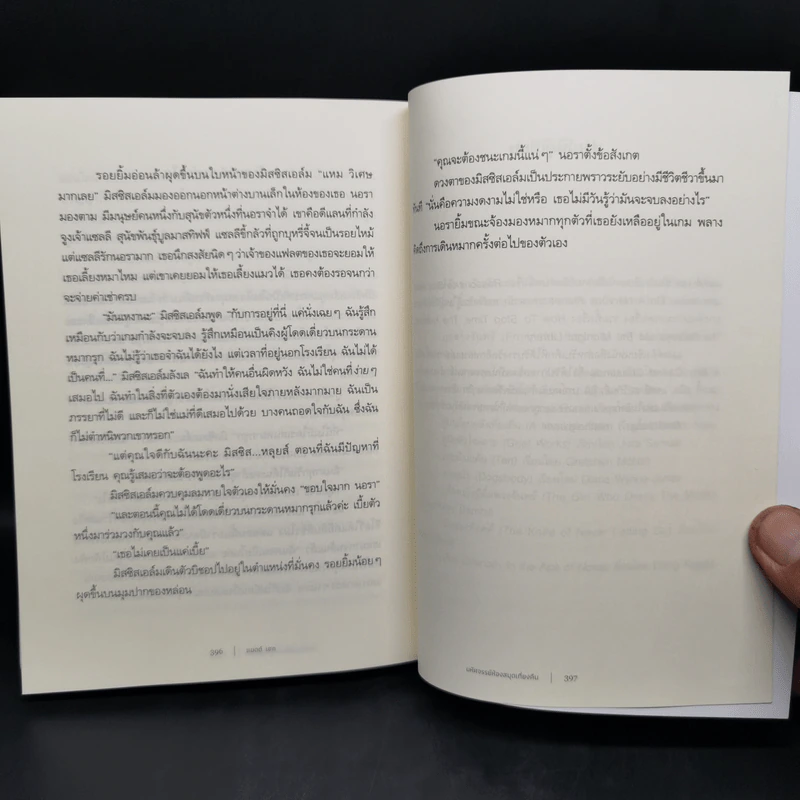 รอยยิ้มอ่อนล้าผุดขึ้นบนใบหน้าของมิสซิสเอล์ม "แหม วิเศษ
มากเลย" มิสซิสเอล์มมองออกนอกหน้าต่างบานเล็กในห้องของเธอ นอรา
มองตาม มีมนุษย์คนหนึ่งกับสุนัขตัวหนึ่งที่นอราจำได้ เขาคือดีแลนที่กำลัง
จูงเจ้าแซลลี สุนัขพันธุ์บูลมาสทิฟฟ์ แซลลีขี้กลัวที่ถูกบุหรี่จี้จนเป็นรอยไหม้
แต่แซลลีรักนอรามาก เธอนึกสงสัยนิดๆว่าเจ้าของแฟลตของเธอจะยอมให้
เธอเลี้ยงหมาไหม แต่เขาเคยยอมให้เธอเลี้ยงแมวได้ เธอคงต้องรอจนกว่า
จะจ่ายค่าเช่าครบ
"มันเหงานะ" มิสซิสเอล์มพูด "กับการอยู่ที่นี่ แค่นั่งเฉยๆ ฉันรู้สึก
เหมือนกับว่าเกมกำลังจะจบลง รู้สึกเหมือนเป็นคิงผู้โดดเดี่ยวบนกระดาน
หมากรุก ฉันไม่รู้ว่าเธอจำฉันได้ยังไง แต่เวลาที่อยู่นอกโรงเรียน ฉันไม่ได้
เป็นคนที่..." มิสซิสเอล์มลังเล "ฉันทำให้คนอื่นผิดหวัง ฉันไม่ใช่คนที่ง่ายๆ
เสมอไป ฉันทำในสิ่งที่ตัวเองต้องมานั่งเสียใจภายหลังมากมาย ฉันเป็น
ภรรยาที่ไม่ดี และก็ไม่ใช่แม่ที่ดีเสมอไปด้วย บางคนถอดใจกับฉัน ซึ่งฉัน
ก็ไม่ตำหนิพวกเขาหรอก"
"แต่คุณใจดีกับฉันนะคะ มิสซิส...หลุยส์ ตอนที่ฉันมีปัญหาที่
โรงเรียน คุณรู้เสมอว่าจะต้องพูดอะไร"
มิสซิสเอล์มควบคุมลมหายใจตัวเองให้มั่นคง "ขอบใจมาก นอรา"
"และตอนนี้คุณไม่ได้โดดเดี่ยวบนกระดานหมากรุกแล้วค่ะ เบี้ยตัว
หนึ่งมาร่วมวงกับคุณแล้ว"
"เธอไม่เคยเป็นแค่เบี้ย"
มิสซิสเอล์มเดินตัวบิชอปไปอยู่ในตำแหน่งที่มั่นคง รอยยิ้มน้อยๆ
ผุดขึ้นบนมุมปากของหล่อน
396 | แมตต์ เฮก
"คุณจะต้องชนะเกมนี้แน่ๆ" นอราตั้งข้อสังเกต
ดวงตาของมิสซิสเอล์มเป็นประกายพราวระยับอย่างมีชีวิตชีวาขึ้นมา
ทันที "นั่นคือความงดงามไม่ใช่หรือ เธอไม่มีวันรู้ว่ามันจะจบลงอย่างไร"
นอรายิ้มขณะจ้องมองหมากทุกตัวที่เธอยังเหลืออยู่ในเกม พลาง
คิดถึงการเดินหมากครั้งต่อไปของตัวเอง
มหัศจรรย์ห้องสมุดเที่ยงคืน | 397